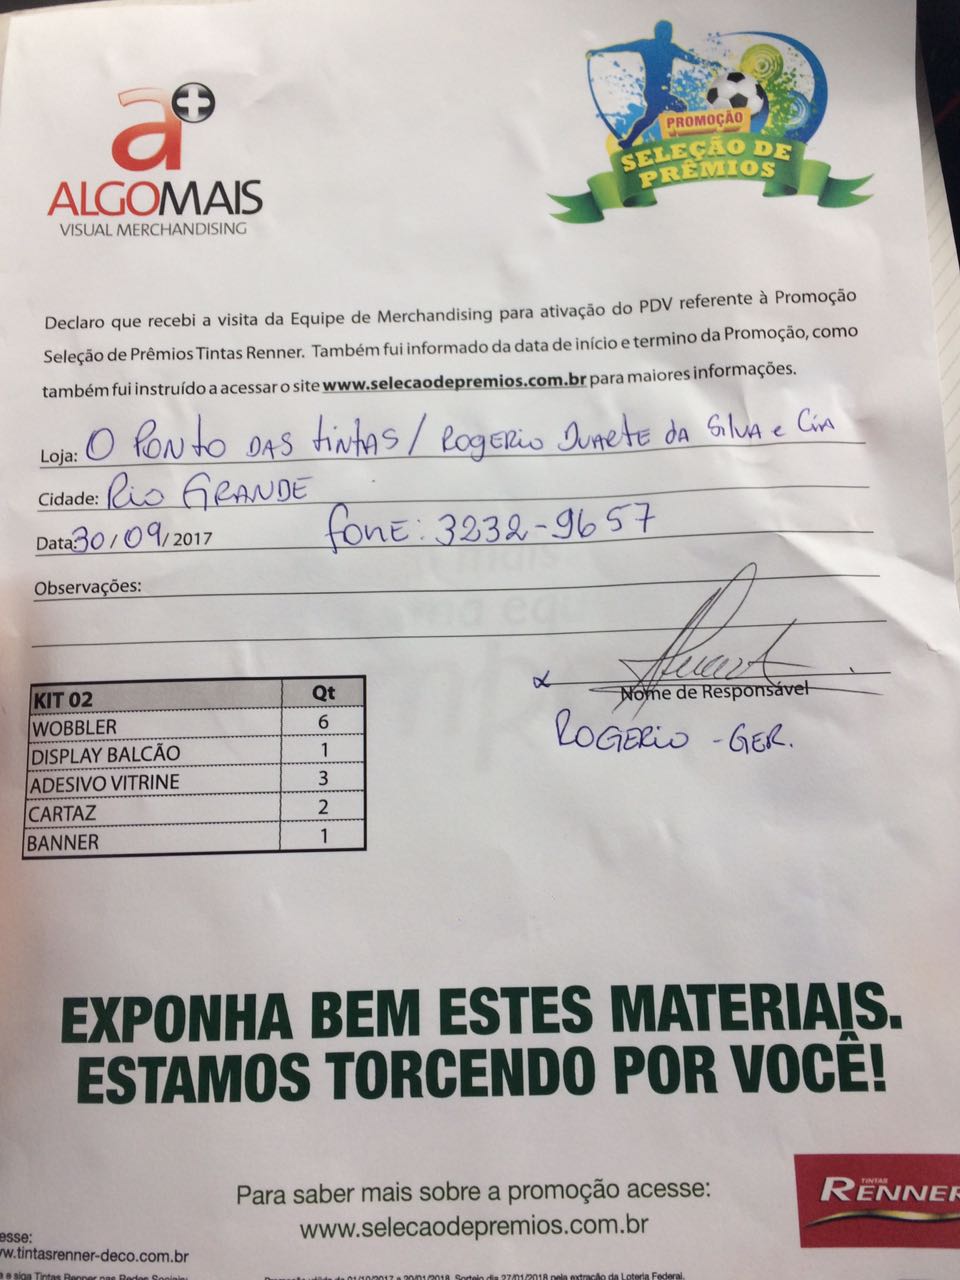 a+
ALGOMAIS
VISUAL MERCHANDISING
PROMOÇÃO
SELEÇÃO DE
PRÊMIOS
Declaro que recebi a visita da Equipe de Merchandising para ativação do PDV referente à Promoção
Seleção de Prêmios Tintas Renner. Também fui informado da data de início e termino da Promoção, como
também fui instruído a acessar o site www.selecaodepremios.com.br para maiores informações.
Loja: O PONTO DAS TINTAS / ROGERIO DUARTE DA SILVA e CIA
Cidade: RIO GRANDE
Data: 30/09/2017 fone: 3232-9657
Observações:
Nome de Responsável
ROGERIO - GER.
KIT 02 Qt
WOBBLER 6
DISPLAY BALCÃO 1
ADESIVO VITRINE 3
CARTAZ 2
BANNER 1
EXPONHA BEM ESTES MATERIAIS.
ESTAMOS TORCENDO POR VOCÊ!
Para saber mais sobre a promoção acesse:
www.selecaodepremios.com.br
TINTAS
RENNER
esse:
w.tintasrenner-deco.com.br
e e siga Tintas Renner nas Redes Sociais:
Promoção válida de 01/10/2017 a 20/01/2018. Sorteio dia 27/01/2018 pela extração da Loteria Federal.